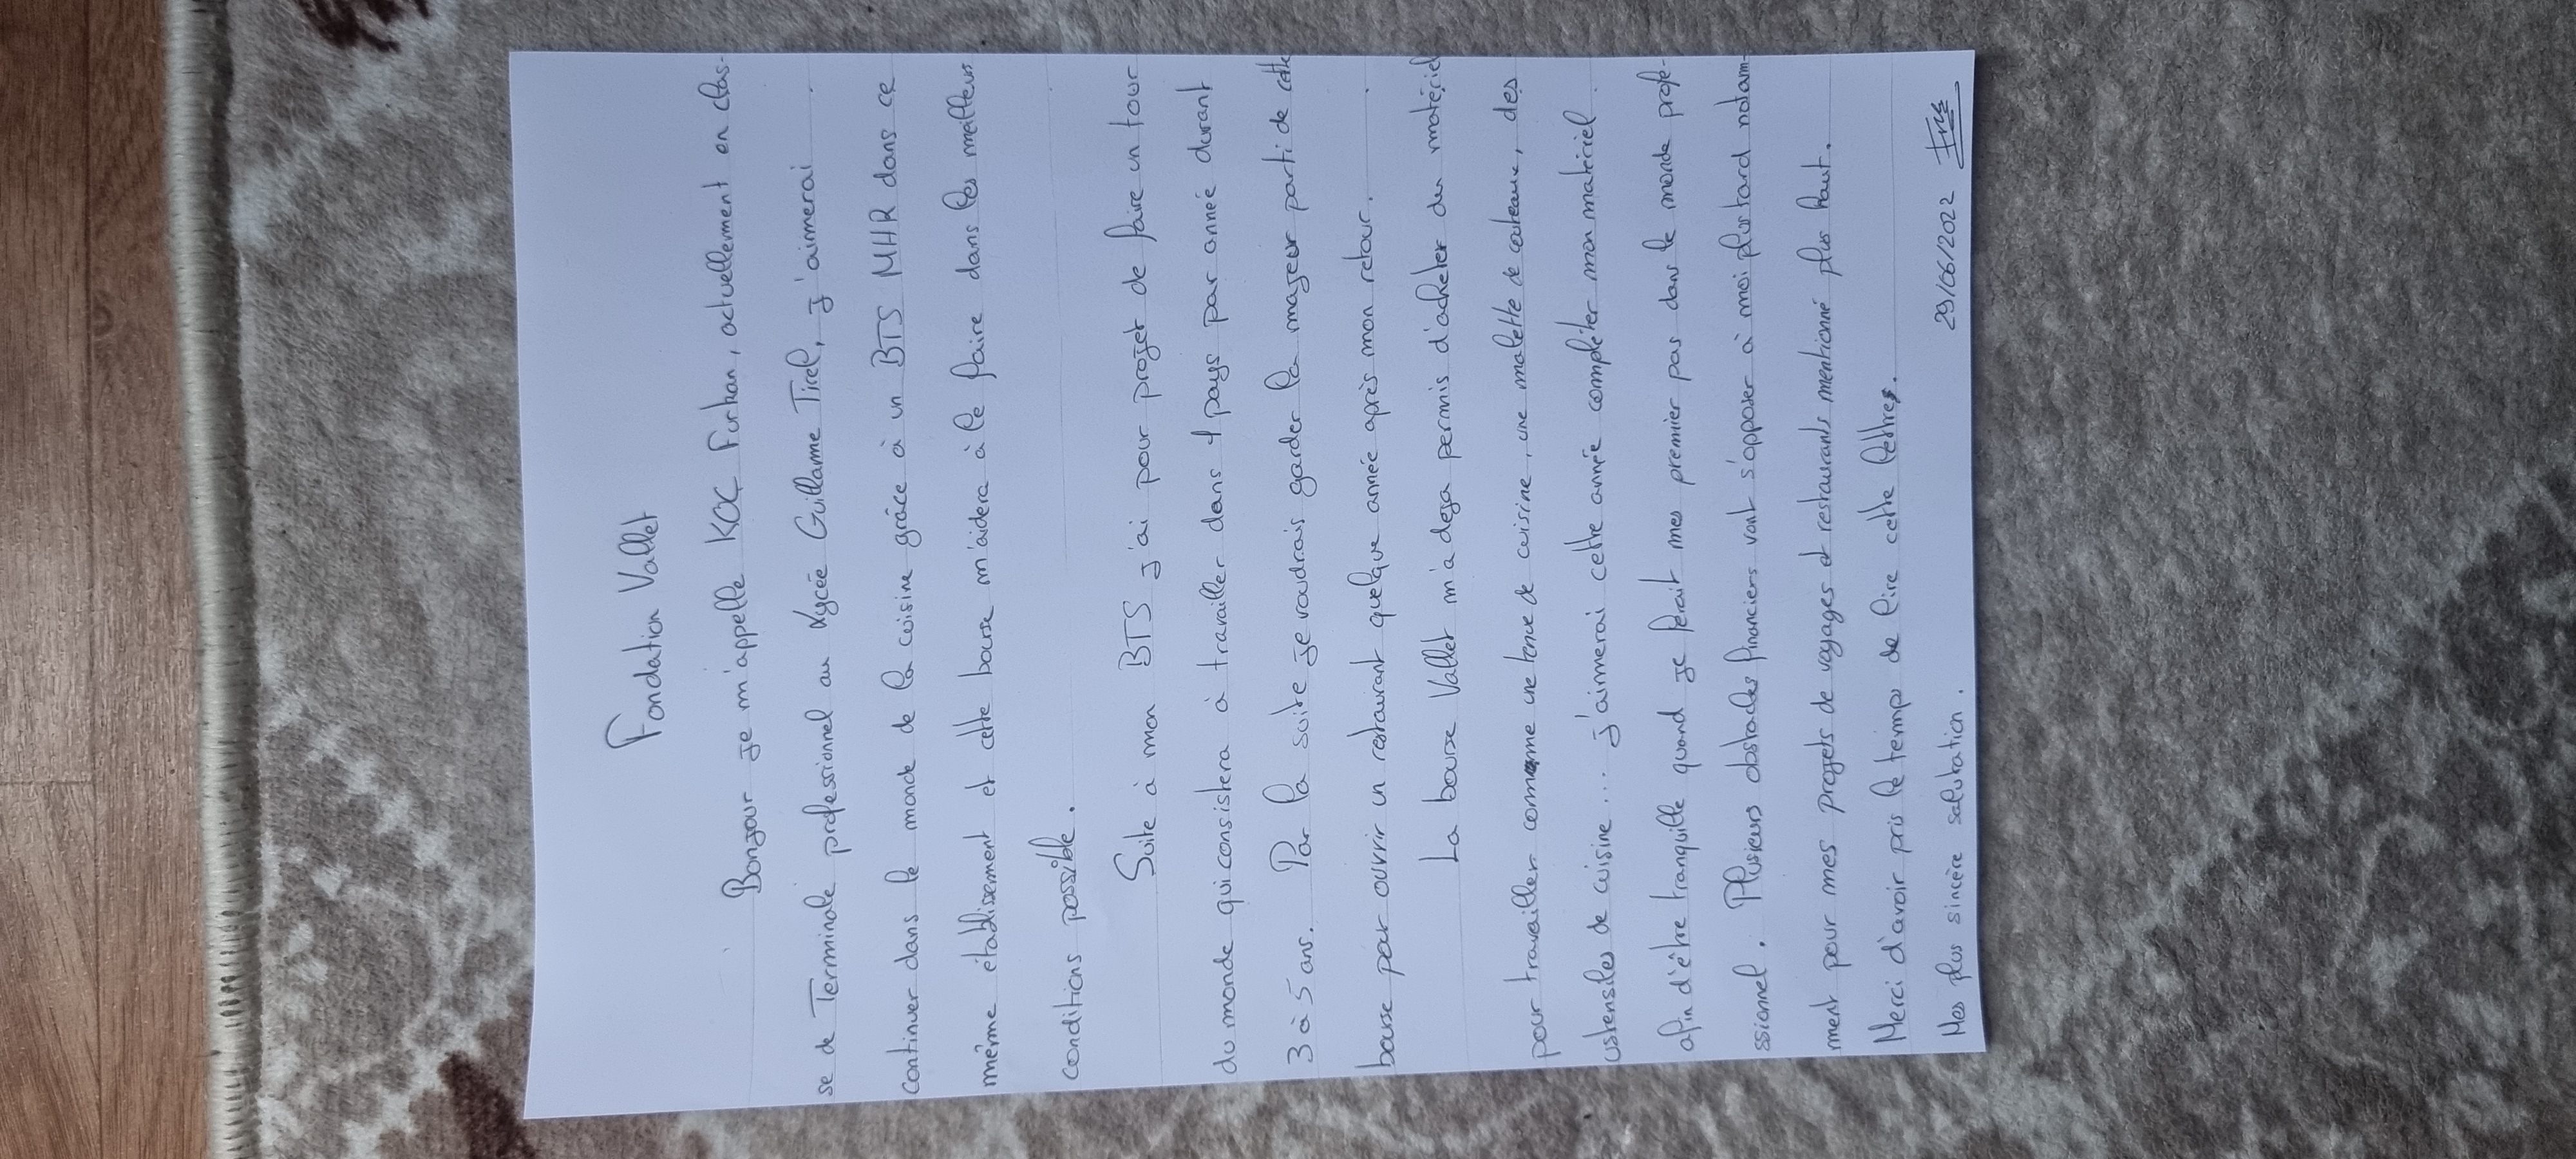 Fondation Vallet
Bonjour je m'appelle KOC Furkan, actuellement en clas-
se de Terminale professionnel au Lycée Guillaume Tirel, j'aimerai
continuer dans le monde de la cuisine grâce à un BTS MHR dans ce
même établissement et cette bourse m'aidera à le faire dans les meilleurs
conditions possible.
Suite à mon BTS j'ai pour projet de faire un tour
du monde qui consistera à travailler dans 1 pays par année durant
3 à 5 ans. Par la suite je voudrais garder la majeur parti de cette
bourse pour ouvrir un restaurant quelque année après mon retour.
La bourse Vallet m'a deja permis d'acheter du matériel
pour travailler comme une tenue de cuisine, une malette de couteaux, des
ustensiles de cuisine... j'aimerai cette année compléter mon matériel
afin d'être tranquille quand je ferait mes premier pas dans le monde profe-
ssionnel. Plusieurs obstacles financiers vont s'opposer à moi plus tard notam-
ment pour mes projets de voyages et restaurants mentionné plus haut.
Merci d'avoir pris le temps de lire cette lettre.
Mes plus sincère salutation. 29/06/2022